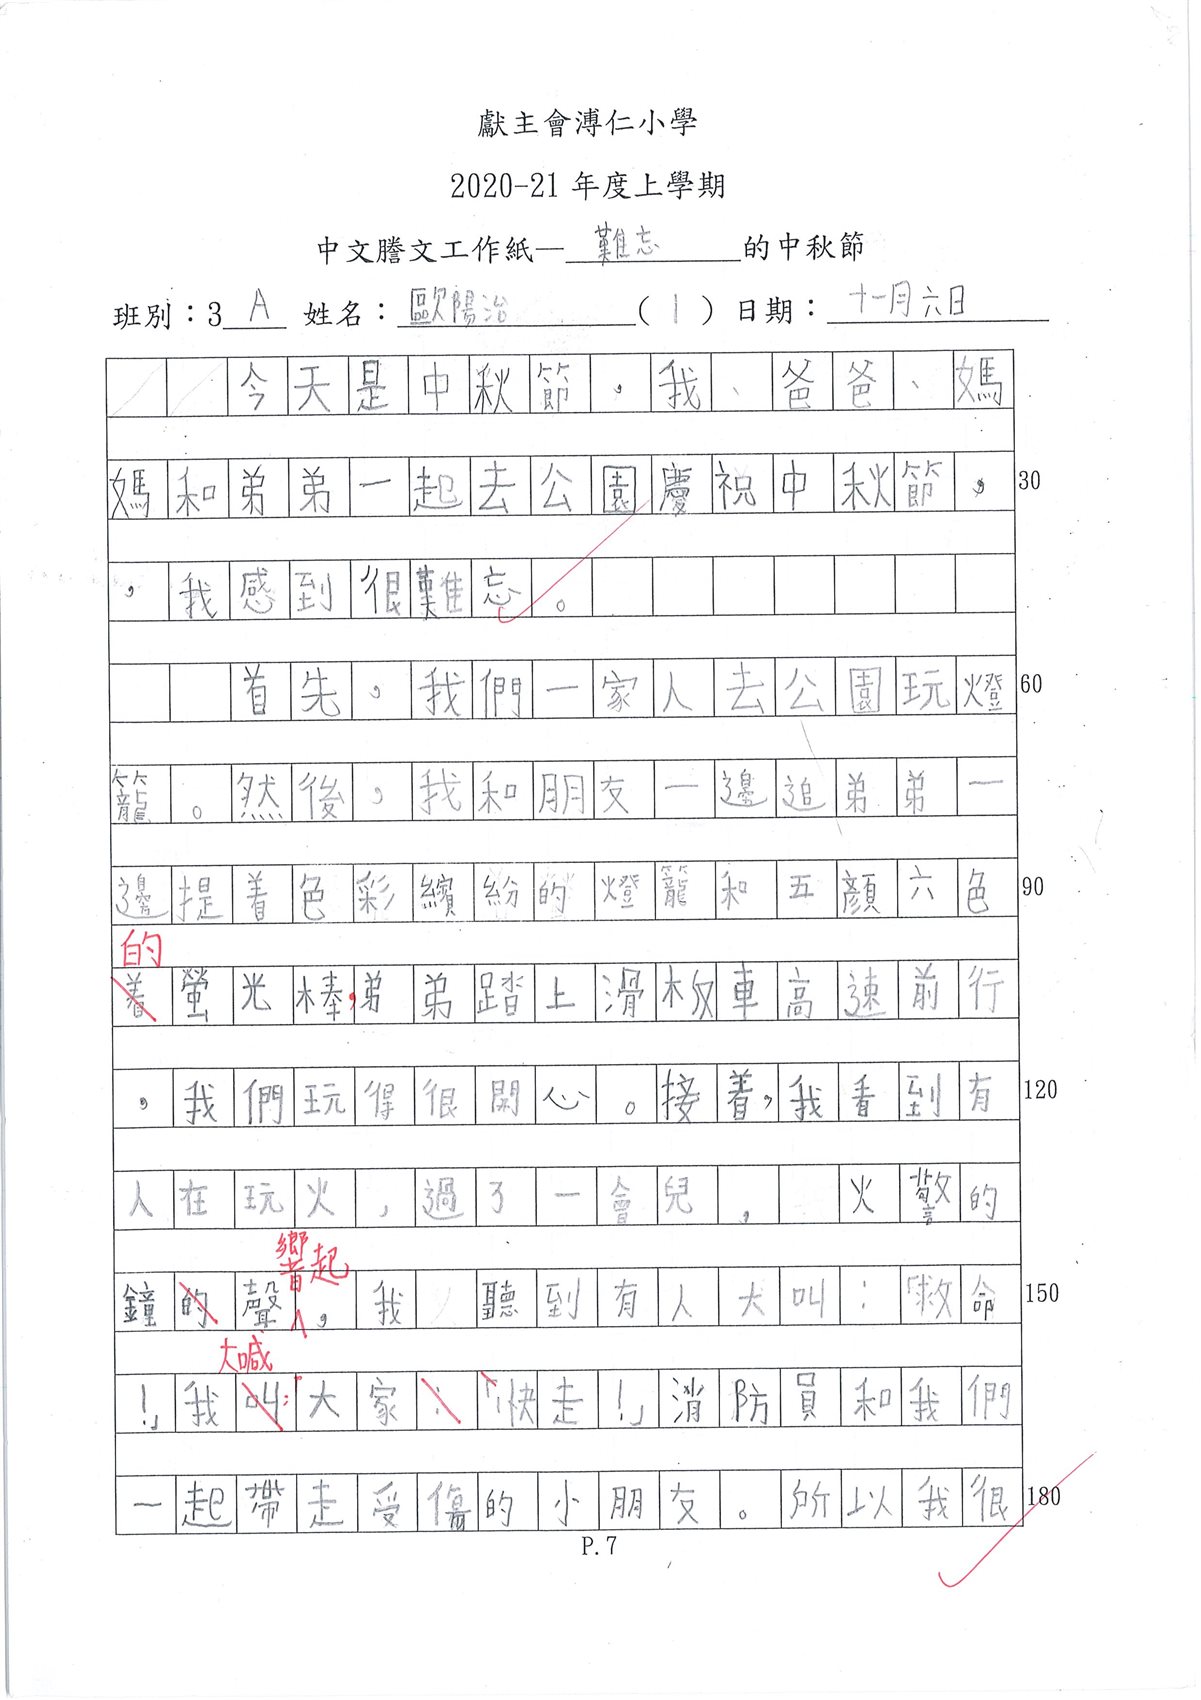 獻主會溥仁小學
2020-21 年度上學期
中文謄文工作紙—難忘的中秋節
班別：3 A 姓名：歐陽治 (1) 日期：十一月六日
今天是中秋節，我、爸爸、媽
媽和弟弟一起去公園慶祝中秋節， 30
，我感到很難忘。
首先，我們一家人去公園玩燈 60
籠。然後，我和朋友一邊追弟弟一
邊提着色彩繽紛的燈籠和五顏六色 90
的
着螢光棒，弟弟踏上滑板車高速前行
，我們玩得很開心。接着，我看到有 120
人在玩火，過了一會兒，火警的
響起
鐘的聲，我聽到有人大叫：「救命 150
大喊
！」我叫：「大家：「快走！」消防員和我們
一起帶走受傷的小朋友。所以我很 180
P.7